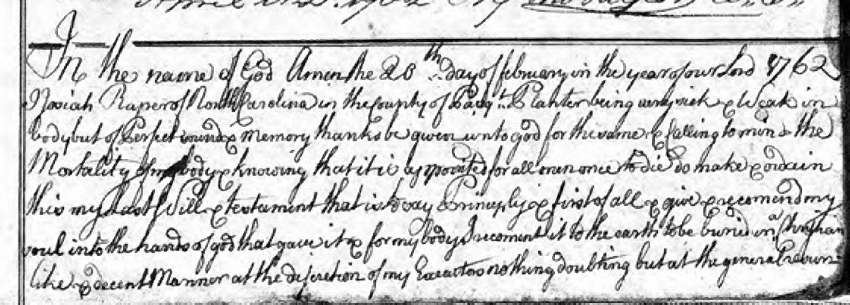 In the name of God Amen the 20th Day of february in the year of our Lord 1762
I Josiah Raper of North Carolina in the County of Pasqtk Planter being very sick & Weak in
body but of Perfect mind & Memory thanks be given unto god for the same & calling to mind the
Mortality of my body & knowing that it is appointed for all men once to die do make & ordain
this my Last Will & testament that is to say & first of all & give & recomend my
soul into the hands of god that gave it & for my body I recoment it to the earth to be buried in a Christian
like & decent Manner at the discretion of my Executors nothing doubting but at the general